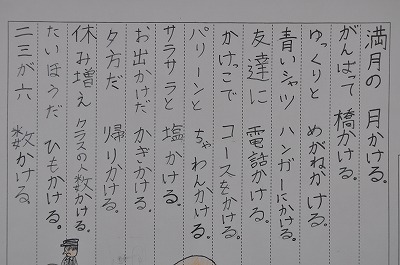 満月の 月かける。
がんばって 橋かける。
ゆっくりと めがねかける。
青いシャツ ハンガーにかける。
友達に 電話かける。
かけっこで コースをかける。
パリーンと ちゃわんかける。
サラサラと 塩かける。
お出かけだ かぎかける。
夕方だ 帰りかける。
休み増え クラスの人数かける。
たいほうだ ひもかける。
二三が六 数かける